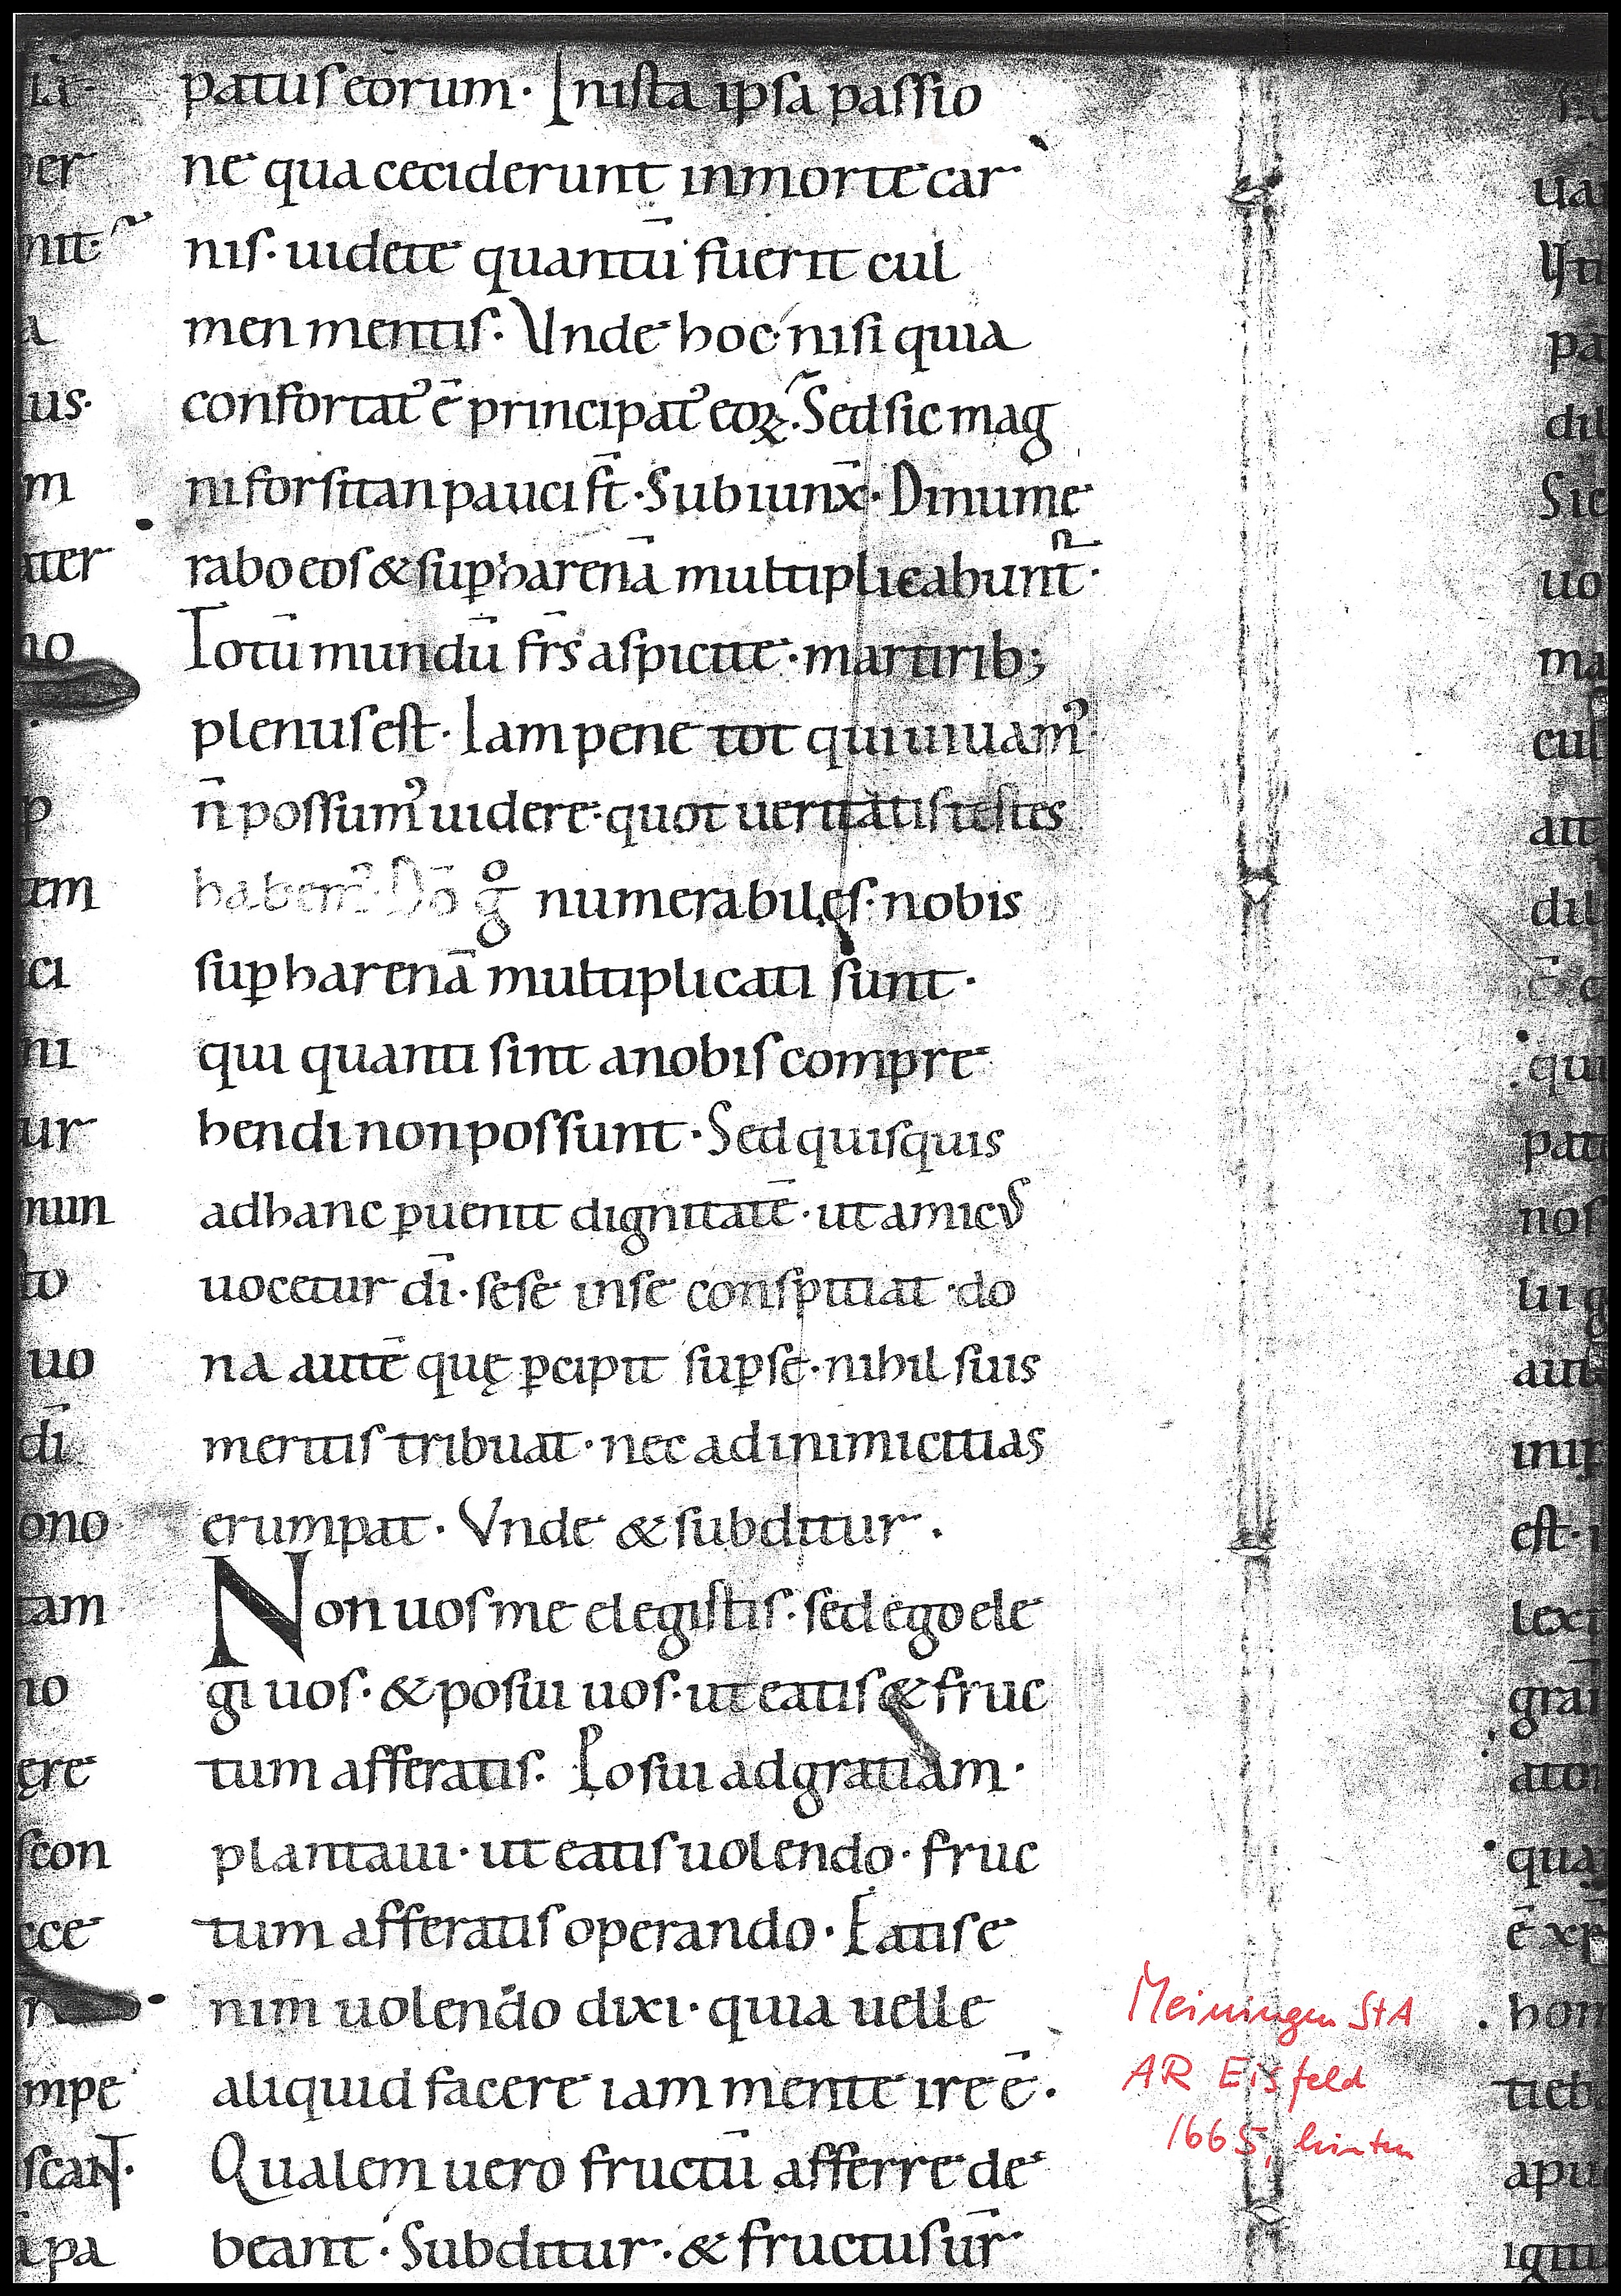 patus eorum· In ista ipsa passio
ne qua ceciderunt in morte car
nis· uidete quantū fuerit cul
men mentis· Vnde hoc· nisi quia
confortatꝰ ē principatꝰ eoꝝ· Sed sic mag
ni forsitan pauci st̄· Subiunx̄· Dinume
rabo eos & suꝑ harenā multiplicabunt̄·
Totū mundū fr̄s aspicite· martirib;
plenus est· Iam pene tot qui uiuamꝰ
n̄ possumꝰ uidere· quot ueritatis testes
habemꝰ· Dō gͦ numerabiles· nobis
suꝑ harenā multiplicati sunt·
qui quanti sint a nobis compre
hendi non possunt· Sed quisquis
ad hanc ꝑuenit dignitatē· ut amicus
uocetur dī· sese in se conspitiat· do
na autē quę ꝑcipit suꝑ se· nihil suis
meritis tribuat· nec ad inimicitias
erumpat· Vnde & subditur·
Non uos me elegistis· sed ego ele
gi uos· & posui uos· ut eatis & fruc
tum afferatis· Posui ad gratiam·
plantaui· ut eatis uolendo· fruc
tum afferatis operando· Eatis e
nim uolendo dixi· quia uelle
aliquid facere iam mente ire ē·
Qualem uero fructū afferre de
beant· Subditur· & fructus ur̄
Meiningen StA
AR Eisfeld
1665, hinten